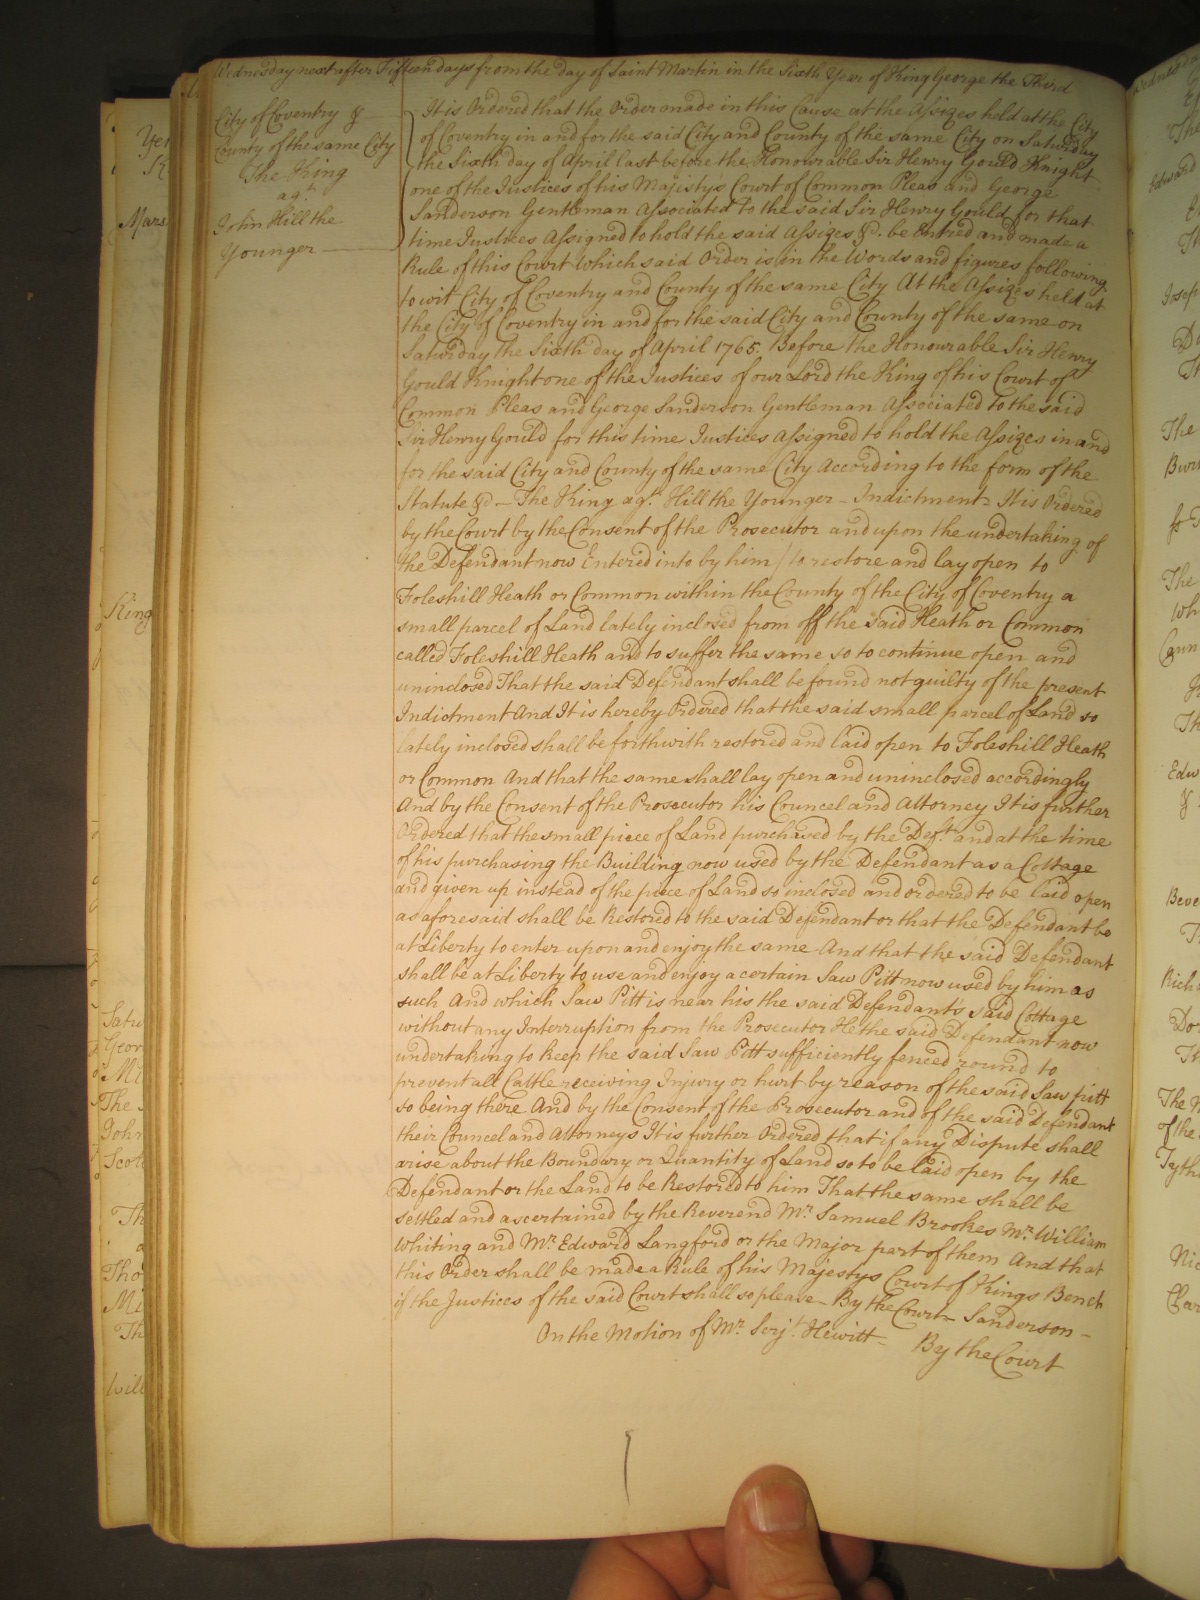 Wednesday next after Fifteen days from the day of Saint Martin in the Sixth Year of King George the Third
City of Coventry &
County of the same City
The King
agt.
John Hill the
Younger
It is Ordered that the Order made in this Cause at the Assizes held at the City
of Coventry in and for the said City and County of the same City on Saturday
the Sixth day of April last before the Honourable Sir Henry Gould Knight
one of the Justices of his Majestys Court of Common Pleas and George
Sanderson Gentleman Associated to the said Sir Henry Gould for that
time Justices Assigned to hold the said Assizes &c. be Entred and made a
Rule of this Court which said Order is in the Words and figures following
to wit City of Coventry and County of the same City At the Assizes held at
the City of Coventry in and for the said City and County of the same on
Saturday the Sixth day of April 1765. Before the Honourable Sir Henry
Gould Knight one of the Justices of our Lord the King of his Court of
Common Pleas and George Sanderson Gentleman Associated to the said
Sir Henry Gould for this time Justices Assigned to hold the Assizes in and
for the said City and County of the same City According to the form of the
Statute &c - The King agt. Hill the Younger - Indictment - It is Ordered
by the Court by the Consent of the Prosecutor and upon the undertaking of
the Defendant now Entered into by him / to restore and lay open to
Foleshill Heath or Common within the County of the City of Coventry a
small parcel of Land lately inclosed from off the said Heath or Common
called Foleshill Heath and to suffer the same so to continue open and
uninclosed That the said Defendant shall be found not guilty of the present
Indictment And It is hereby Ordered that the said small parcel of Land so
lately inclosed shall be forthwith restored and laid open to Foleshill Heath
or Common And that the same shall lay open and uninclosed accordingly
And by the Consent of the Prosecutor his Councel and Attorney It is further
Ordered that the small piece of Land purchased by the Deft. and at the time
of his purchasing the Building now used by the Defendant as a Cottage
and given up instead of the piece of Land so inclosed and ordered to be laid open
as aforesaid shall be Restored to the said Defendant or that the Defendant be
at Liberty to enter upon and enjoy the same And that the said Defendant
shall be at Liberty to use and enjoy a certain Saw Pitt now used by him as
such And which Saw Pitt is near his the said Defendant's said Cottage
without any Interruption from the Prosecutor He the said Defendant now
undertaking to keep the said Saw Pitt sufficiently fenced round to
prevent all Cattle receiving Injury or hurt by reason of the said Saw pitt
so being there And by the Consent of the Prosecutor and of the said Defendant
their Councel and Attorneys It is further Ordered that if any Dispute shall
arise about the Boundary or Quantity of Land so to be laid open by the
Defendant or the Land to be Restored to him That the same shall be
settled and ascertained by the Reverend Mr. Samuel Brookes Mr. William
Whiting and Mr. Edward Langford or the Major part of them And that
this Order shall be made a Rule of his Majestys Court of Kings Bench
if the Justices of the said Court shall so please - By the Court - Sanderson -
On the Motion of Mr. Serjt. Hewitt - By the Court